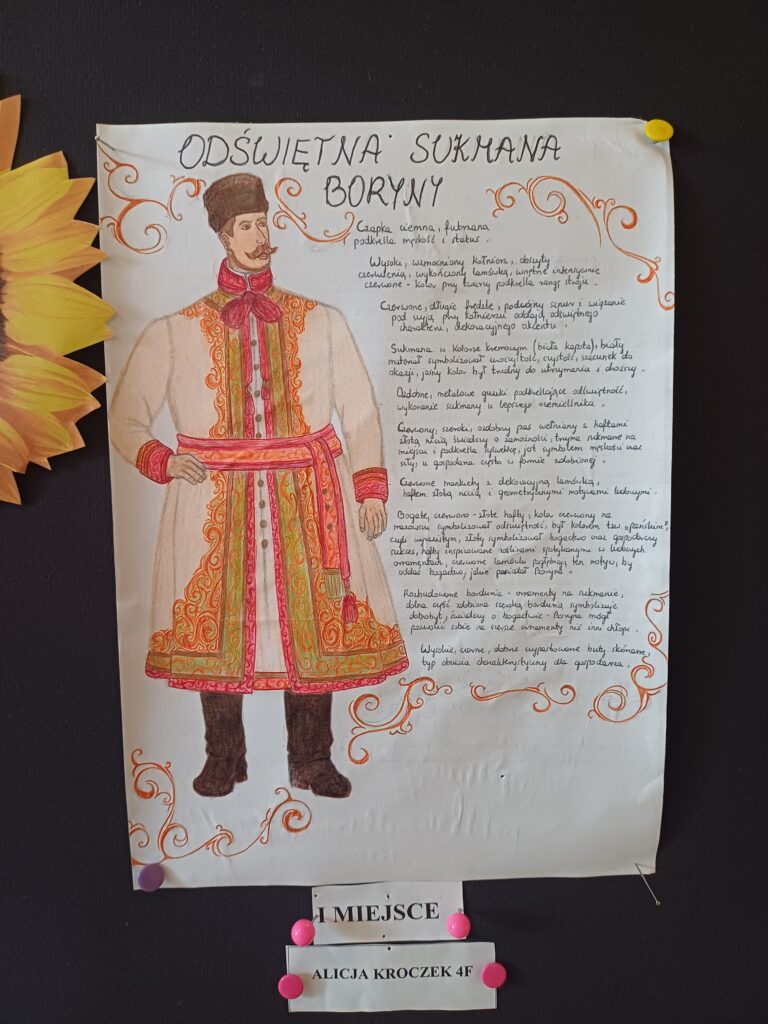 ODŚWIĘTNA SUKMANA
BORYNY
Czapka ciemna, futrzana
podkreśla męskość i status.
Wysoki, wzmocniony kołnierz, obszyty
czerwienią, wykończony lamówką, wnętrze intensywnie
czerwone - kolor przy twarzy podkreśla rangę stroju.
Czerwone, długie frędzle, podwójny sznur i wiązanie
pod szyją przy kołnierzu oddają odświętnego
charakteru, dekoracyjnego akcentu.
Sukmana w kolorze kremowym (biała kapota), biały
materiał symbolizował uroczystość, czystość, szacunek do
okazji, jasny kolor był trudny do utrzymania i droższy.
Ozdobne, metalowe guziki podkreślające odświętność,
wykonanie sukmany u lepszego rzemieślnika.
Czerwony, szeroki, ozdobny pas wełniany z haftami
złotą nicią, świadczy o zamożności, trzyma sukmanę na
miejscu i podkreśla sylwetkę, jest symbolem męskości oraz
siły, u gospodarza często w formie zdobionej.
Czerwone mankiety z dekoracyjną lamówką,
haftem złotą nicią i geometrycznymi motywami ludowymi.
Bogate, czerwono - złote hafty, kolor czerwony na
mazowszu symbolizował odświętność, był kolorem tzw. "pańskim",
czyli wyrazistym, złoty symbolizował bogactwo oraz gospodarczy
sukces, hafty inspirowane roślinami spotykanymi w ludowych
ornamentach, czerwone lamówki pogłębiają ten motyw, by
oddać bogactwo, jakie posiadał Boryna.
Rozbudowana bordiura - ornamenty na sukmanie,
dolna część zdobiona szeroką bordiurą symbolizuje
dobrobyt, świadczy o bogactwie - Boryna mógł
pozwolić sobie na szersze ornamenty niż inni chłopi.
Wysokie, czarne, dobrze wypastowane buty skórzane,
typ obuwia charakterystyczny dla gospodarza.
I MIEJSCE
ALICJA KROCZEK 4F